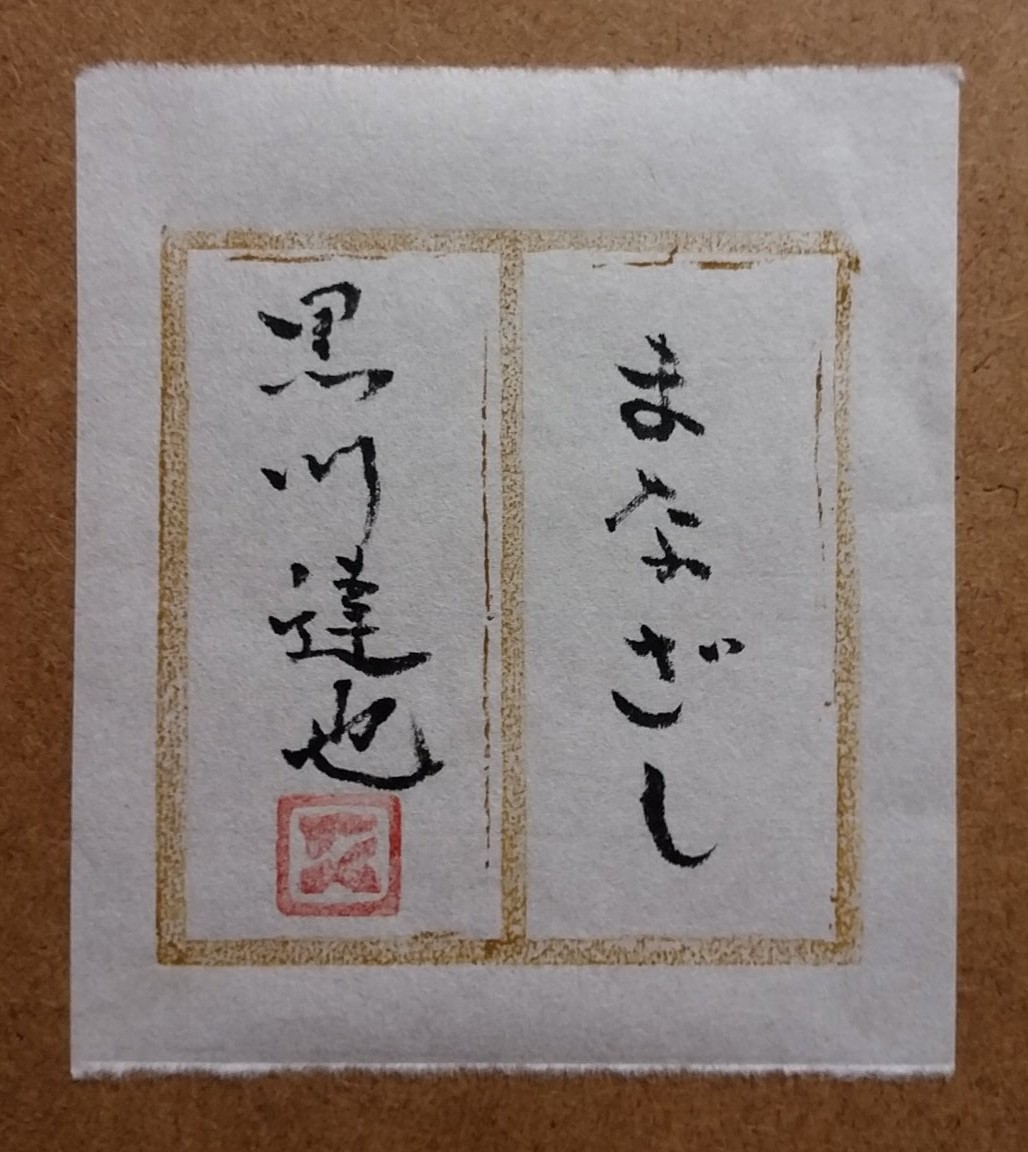 まなざし
黒川達也